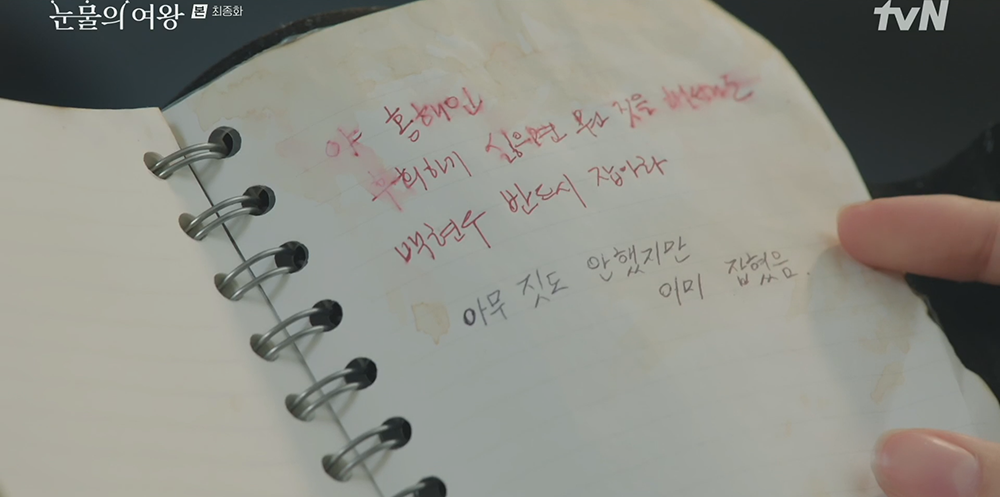 눈물의 여왕 본 최종화
tvN
야 홍해인
후회하기 싫으면 뭔 짓을 해서라도
백현우 반드시 잡아라
아무 짓도 안했지만
이미 잡혔음.